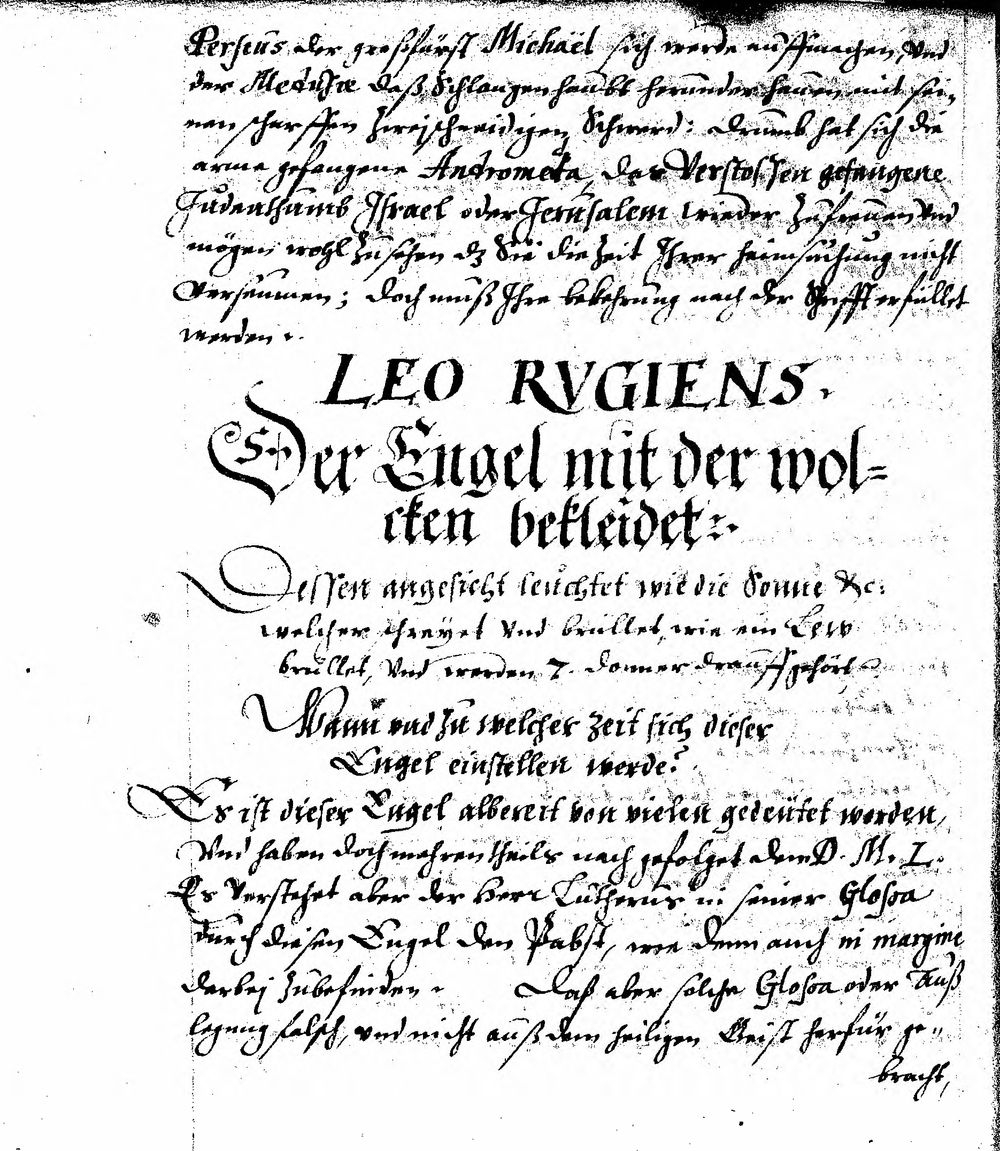 Perseus der großfürst Michaël sich werde auffmachen, Vnd
der Medusæ daß Schlangenhaubt herunder hauen mit sei-
nen scharffen Zweischneidigen Schwerd: drumb hat sich die
arme gefangene Andromeda, das Verstossen gefangene
Judenthumb Israel oder Jerusalem wieder Zufreuen Vnd
mögen wohl Zusehen dz Sie die Zeit Ihrer heimsuchung nicht
Verseumen; doch muß Ihre bekehrung nach der Schrifft erfüllet
werden.
LEO RVGIENS.
Der Engel mit der wol=
cken bekleidet:.
Dessen angesicht leuchtet wie die Sonne &c:
welcher schreyet Vnd brüllet, wie ein Lew
brüllet, Vnd werden 7. donner drauff gehört.
Wann vnd zu welcher zeit sich dieser
Engel einstellen werde?
Es ist dieser Engel albereit von vielen gedeutet worden,
Vnd haben doch mehrentheils nach gefolget dem D. M. L.
Es Verstehet aber der Herr Lutherus in seiner Glossa
durch diesen Engel den Pabst, wie denn auch in margine
darbej Zubefinden. Daß aber solche Glossa oder Auß
legung falsch, vnd nicht auß dem heiligen Geist herfür ge-
bracht,